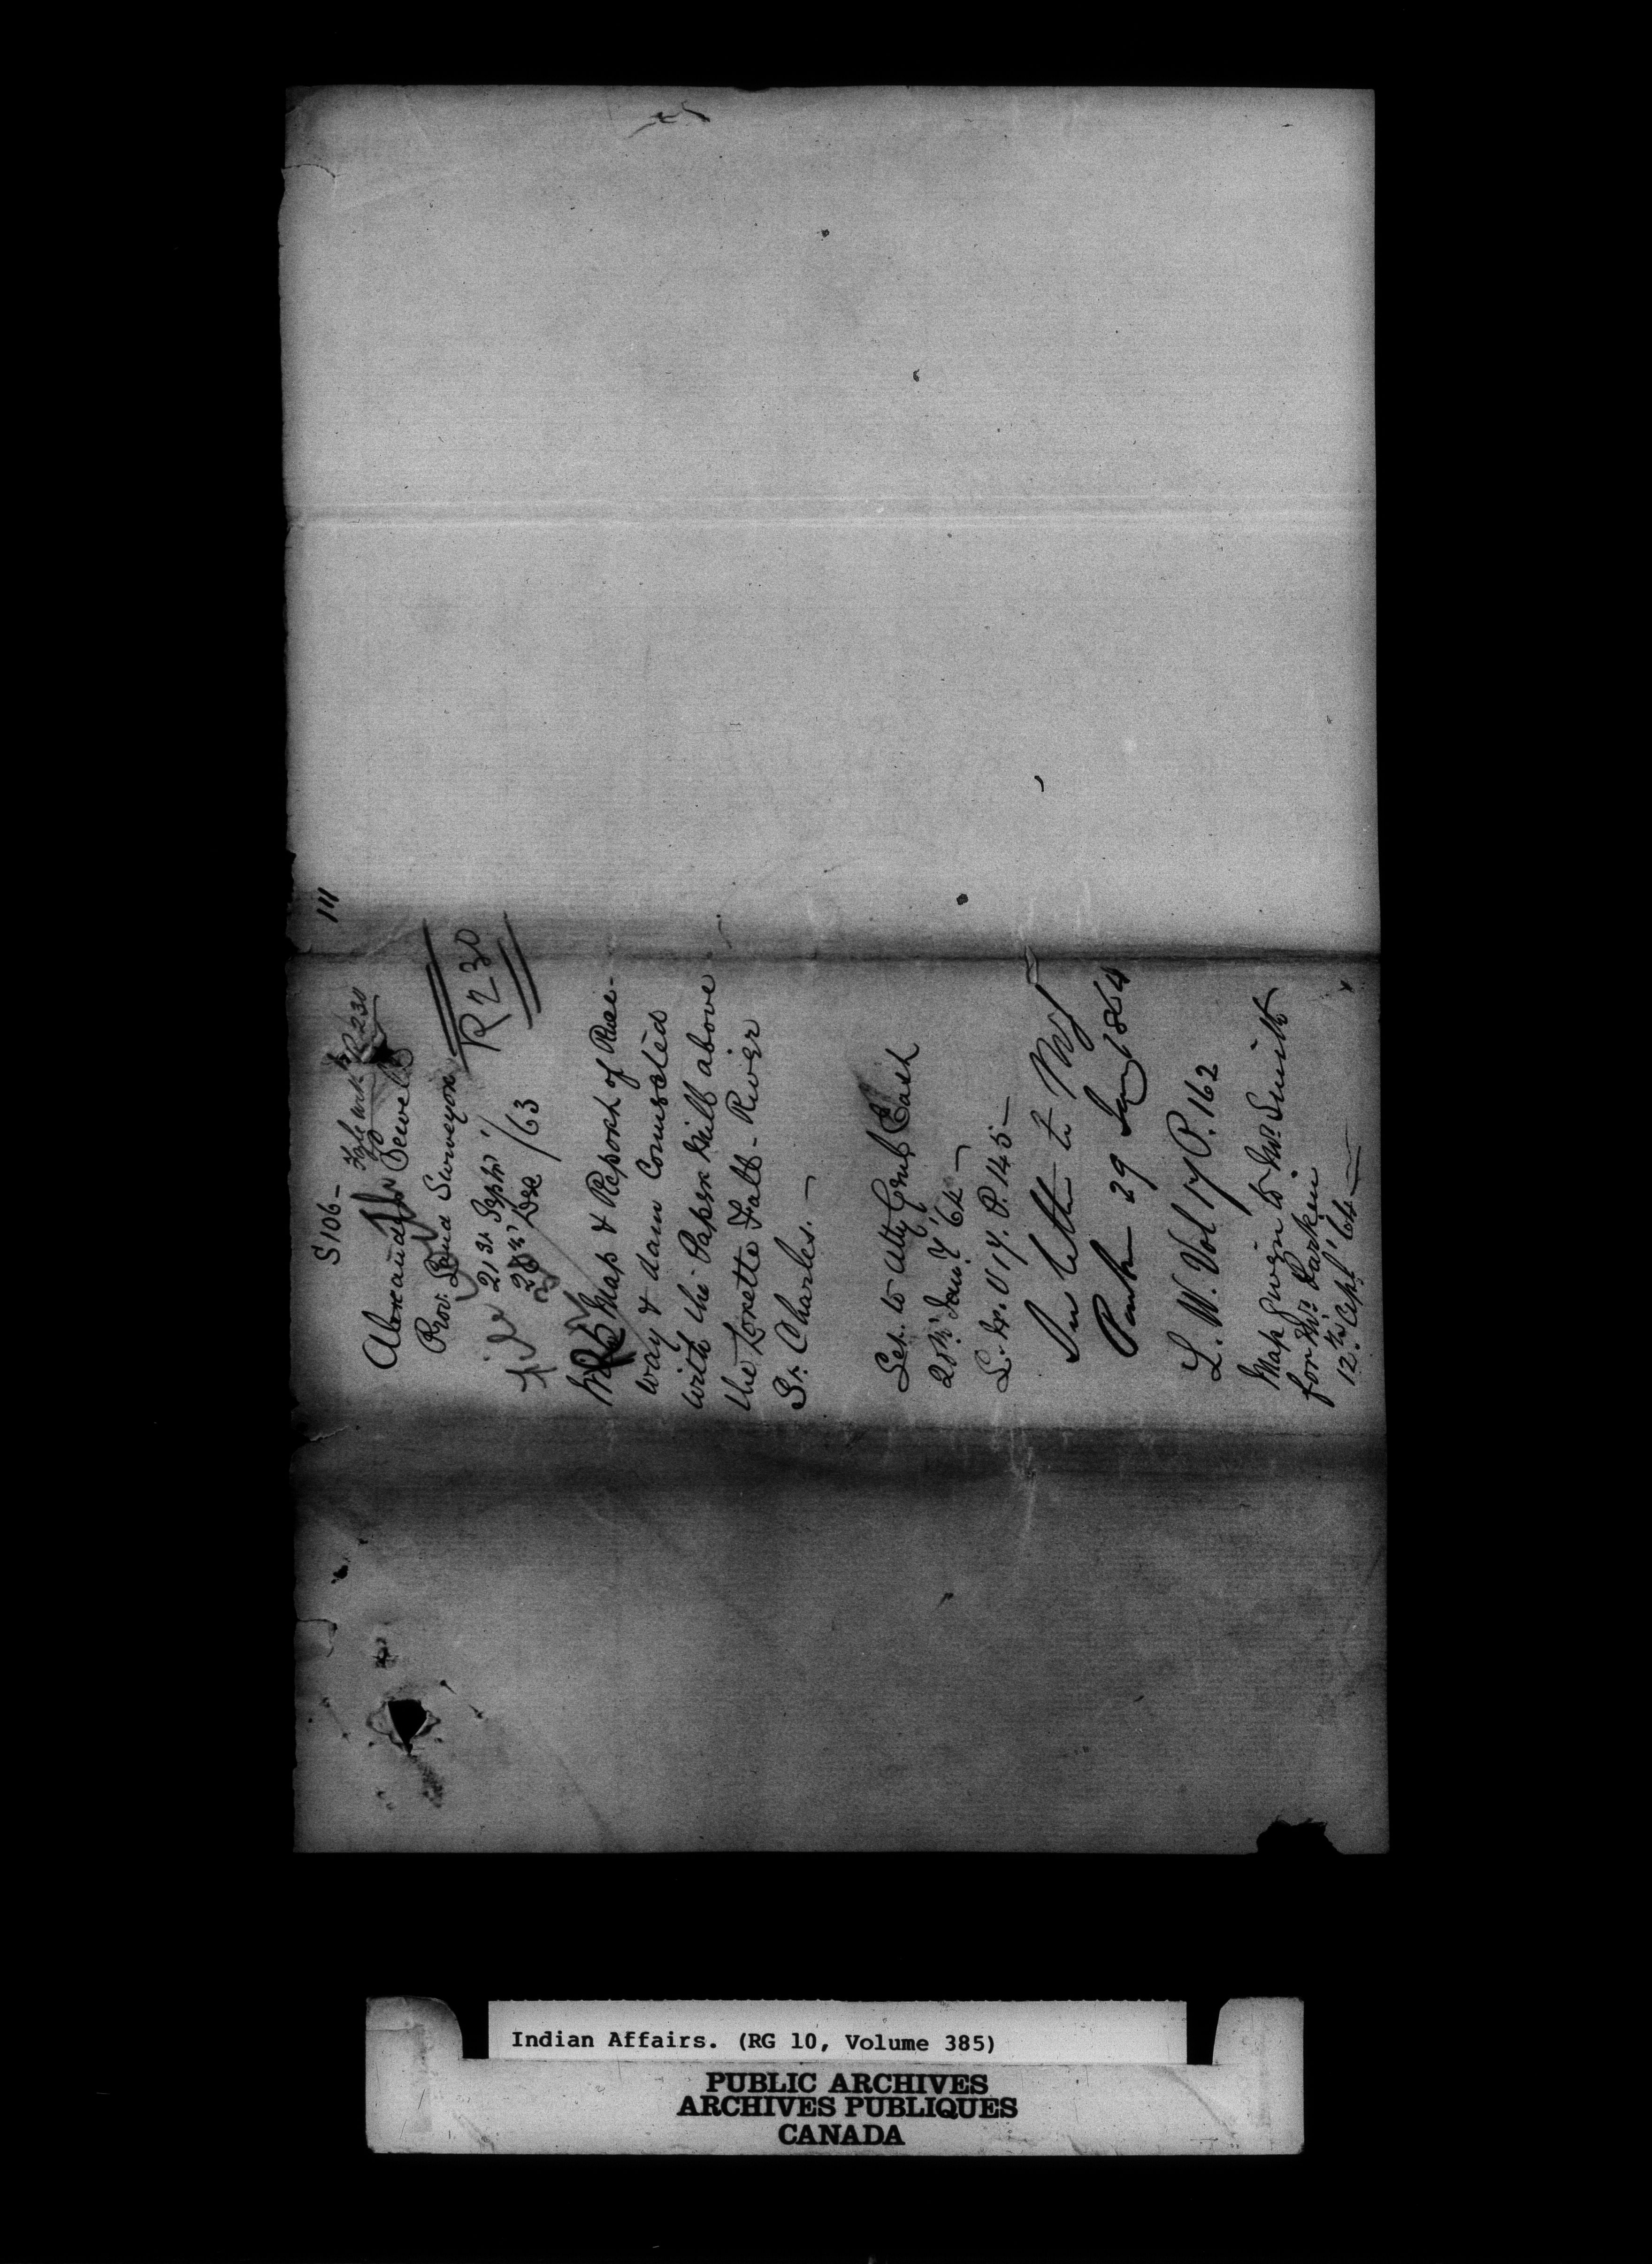 111
S 106 –
File with R 230
Alexander Sewell
Prov: Land Surveyor
R 230
21st Septr
28th Dec /63
File
Map & Report of Race-
way & dam Connected
with the Paper Mill above
the Lorette Fall – River
St. Charles. –
Let. to Atty Genl East
28th Jany '64 –
L. W. V 17. P. 145 –
See letter to Wm
29 Jany 1864
L. W. Vol 17 P. 162
Map given to Mr. Smith
for Mr. Larkin
12th Apl '64 –
Indian Affairs. (RG 10, Volume 385)
PUBLIC ARCHIVES
ARCHIVES PUBLIQUES
CANADA